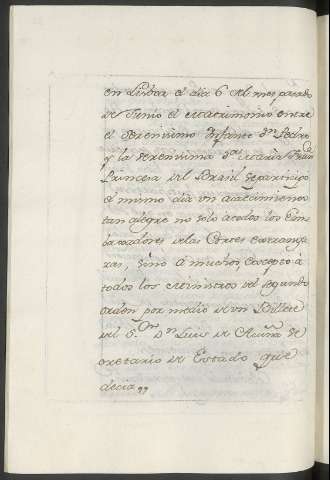 en Lisboa el dia 6 del mes pasado
de Junio el Matrimonio entre
el Serenisimo Infante Dn. Pedro
y la Serenisima Da. Maria Fran.ca
Princesa del Brasil se participó
el mismo dia un acaecimiento
tan alegre no solo a todos los Em-
baxadores de las Cortes extrange-
ras, sino á muchos, excepto á
todos los Ministros del segundo
orden por medio de un Billete
del S.or Dn. Luis de Acuña Se-
cretario de Estado que
decia,,